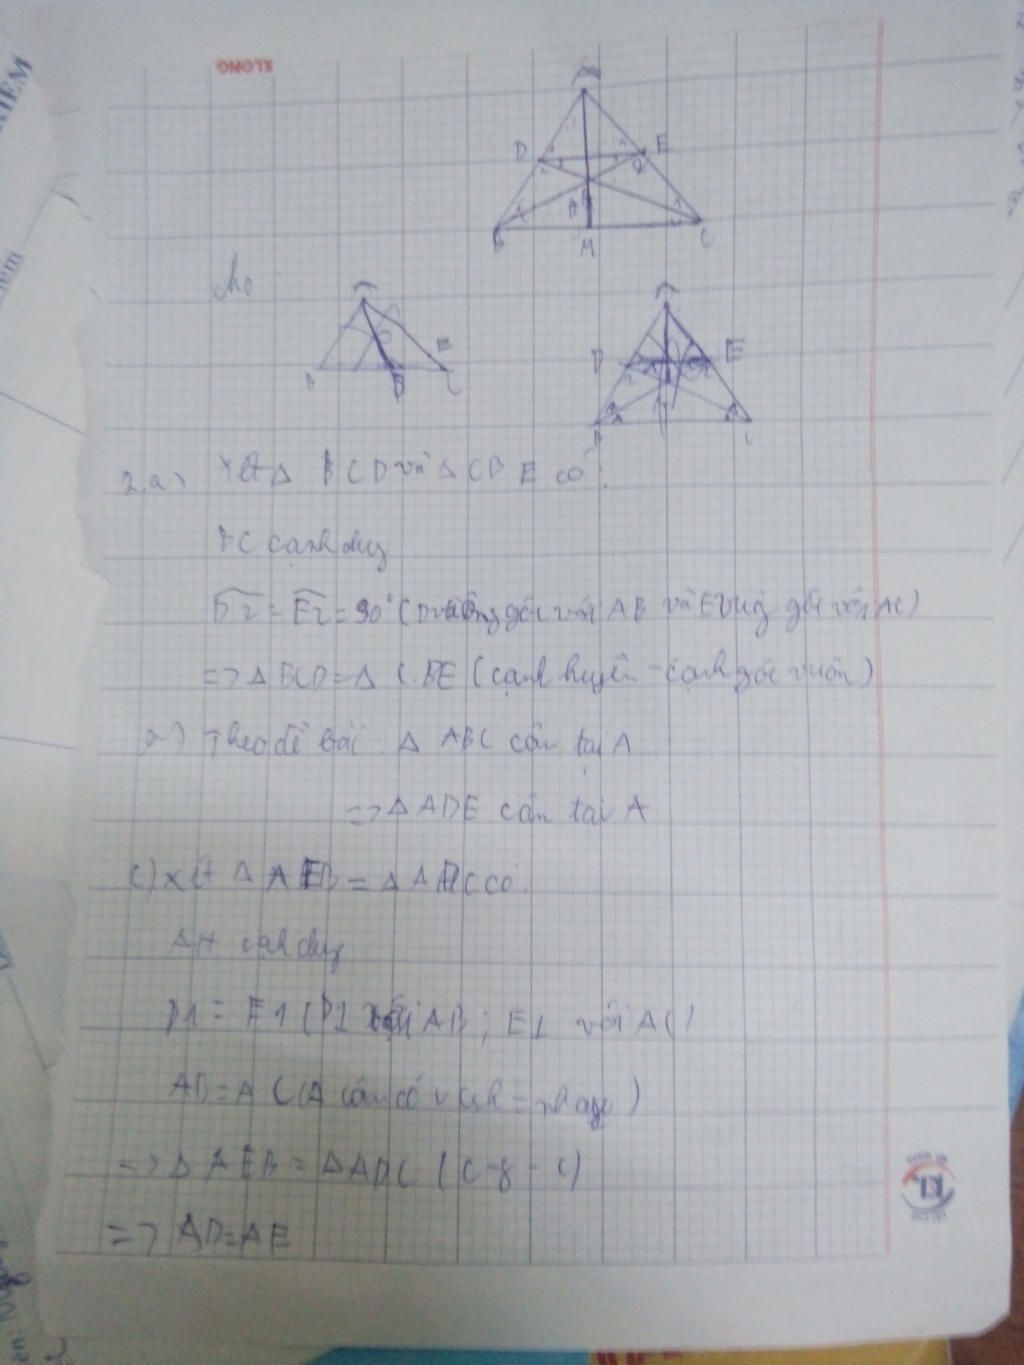 KLONG
A
D E
H
B M C
A
B D C
E
A
D E
B C
2.a) Xét Δ BCD và Δ CBE có:
BC cạnh chug
D2 = E2 = 90° (D vuông góc với AB và E vuông góc với AC)
=> Δ BCD = Δ CBE (cạnh huyền - cạnh góc vuôn)
Theo đề bài: Δ ABC cân tại A
=> Δ ADE cân tại A
c) xét Δ AEB = Δ ADC có:
AH cạnh chug
D1 = E1 (D⊥ với AB; E⊥ với AC)
AB = AC (Δ cân có
=> Δ AEB = Δ ADC (c-g-c)
=> AD = AE